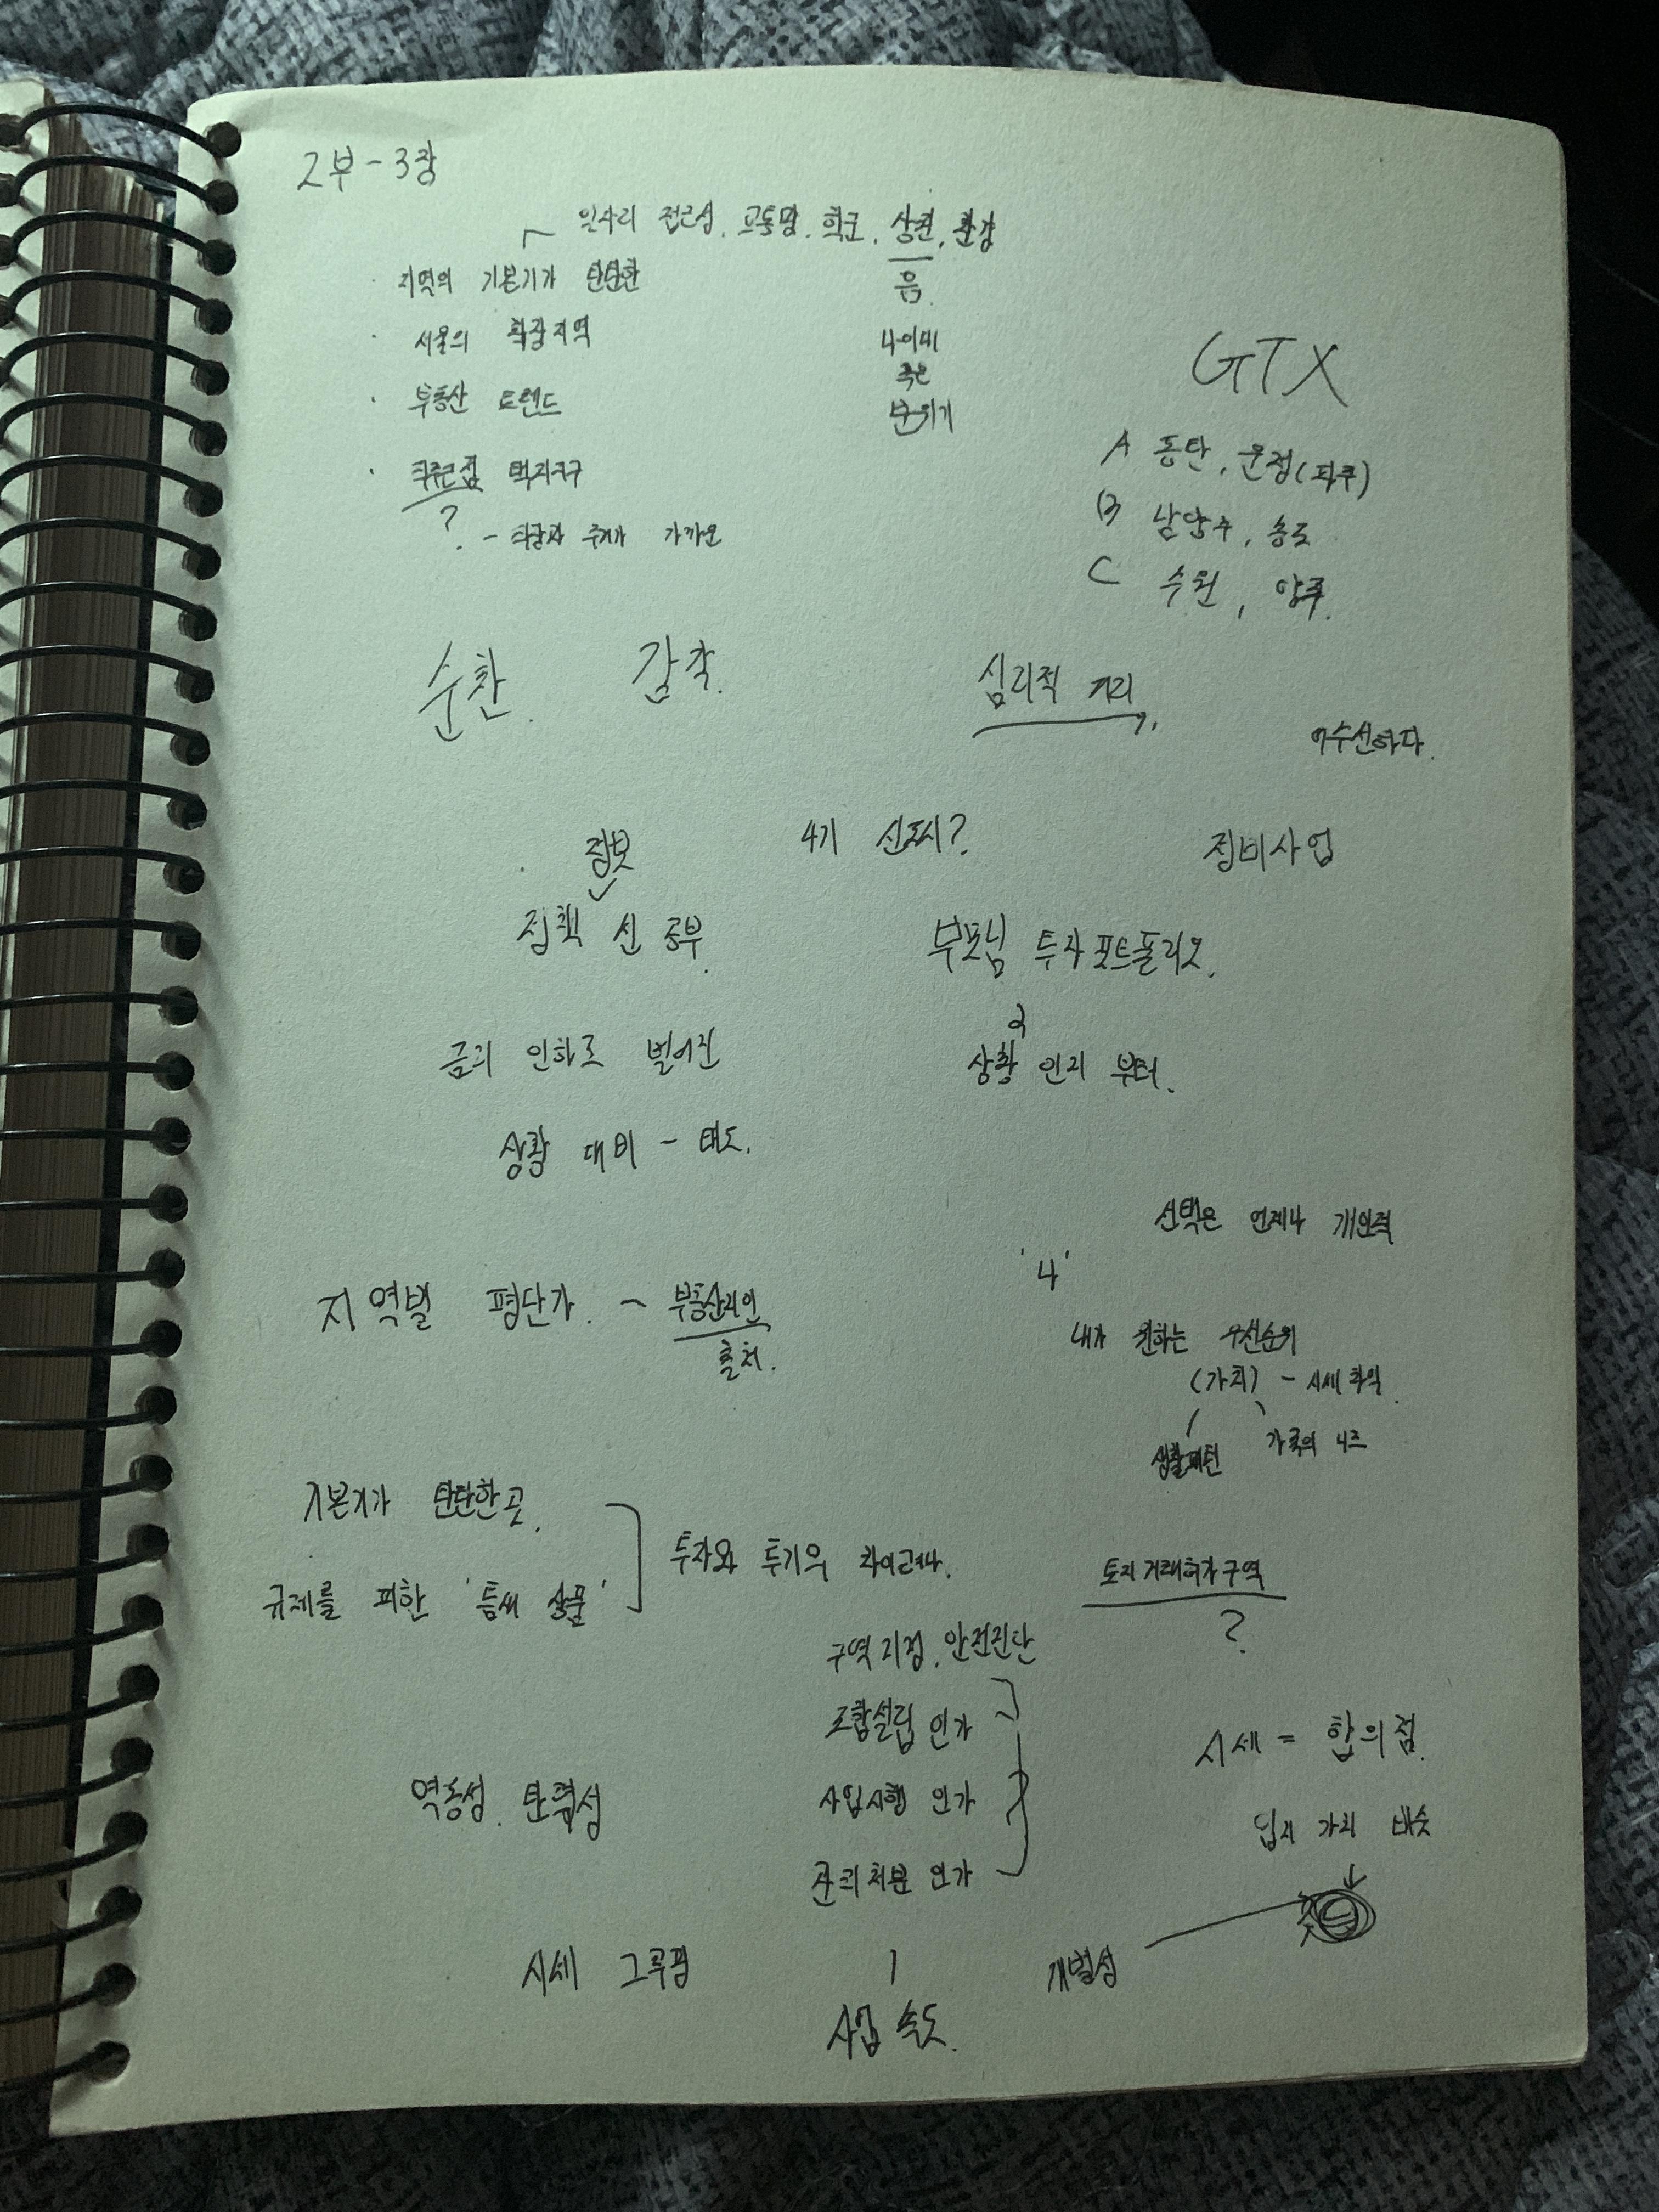 2부-3장
일자리 접근성, 교통망, 학군, 상권, 환경
지역의 기본기가 탄탄한
음.
서울의 확장지역
나이대
혹은
부동산 트렌드
분위기
직주근접 택지지구
?
- 직장과 주거가 가까운
GTX
A 동탄, 운정(파주)
B 남양주, 송도
C 수원, 양주.
순환. 감각.
심리적 거리
어수선하다.
정보
4기 신도시?
정비사업
정책 신 공부.
부모님 투자포트폴리오.
금리 인하로 벌어진
상황 인지 부터.
상황 대비 - 태도.
선택은 언제나 개인적
'나'
지역별 평단가. - 부동산지인
출처.
내가 원하는 우선순위
(가치) - 시세 파악.
생활패턴 가족의 니즈
기본기가 탄탄한 곳.
규제를 피한 '틈새 상품'
투자와 투기의 차이려나.
토지거래허가구역
?
구역지정, 안전진단
조합설립 인가
사업시행 인가
관리처분 인가
역동성. 탄력성
시세 = 합의점.
입지 가치
시세 그루핑
개별성
사업 속도.